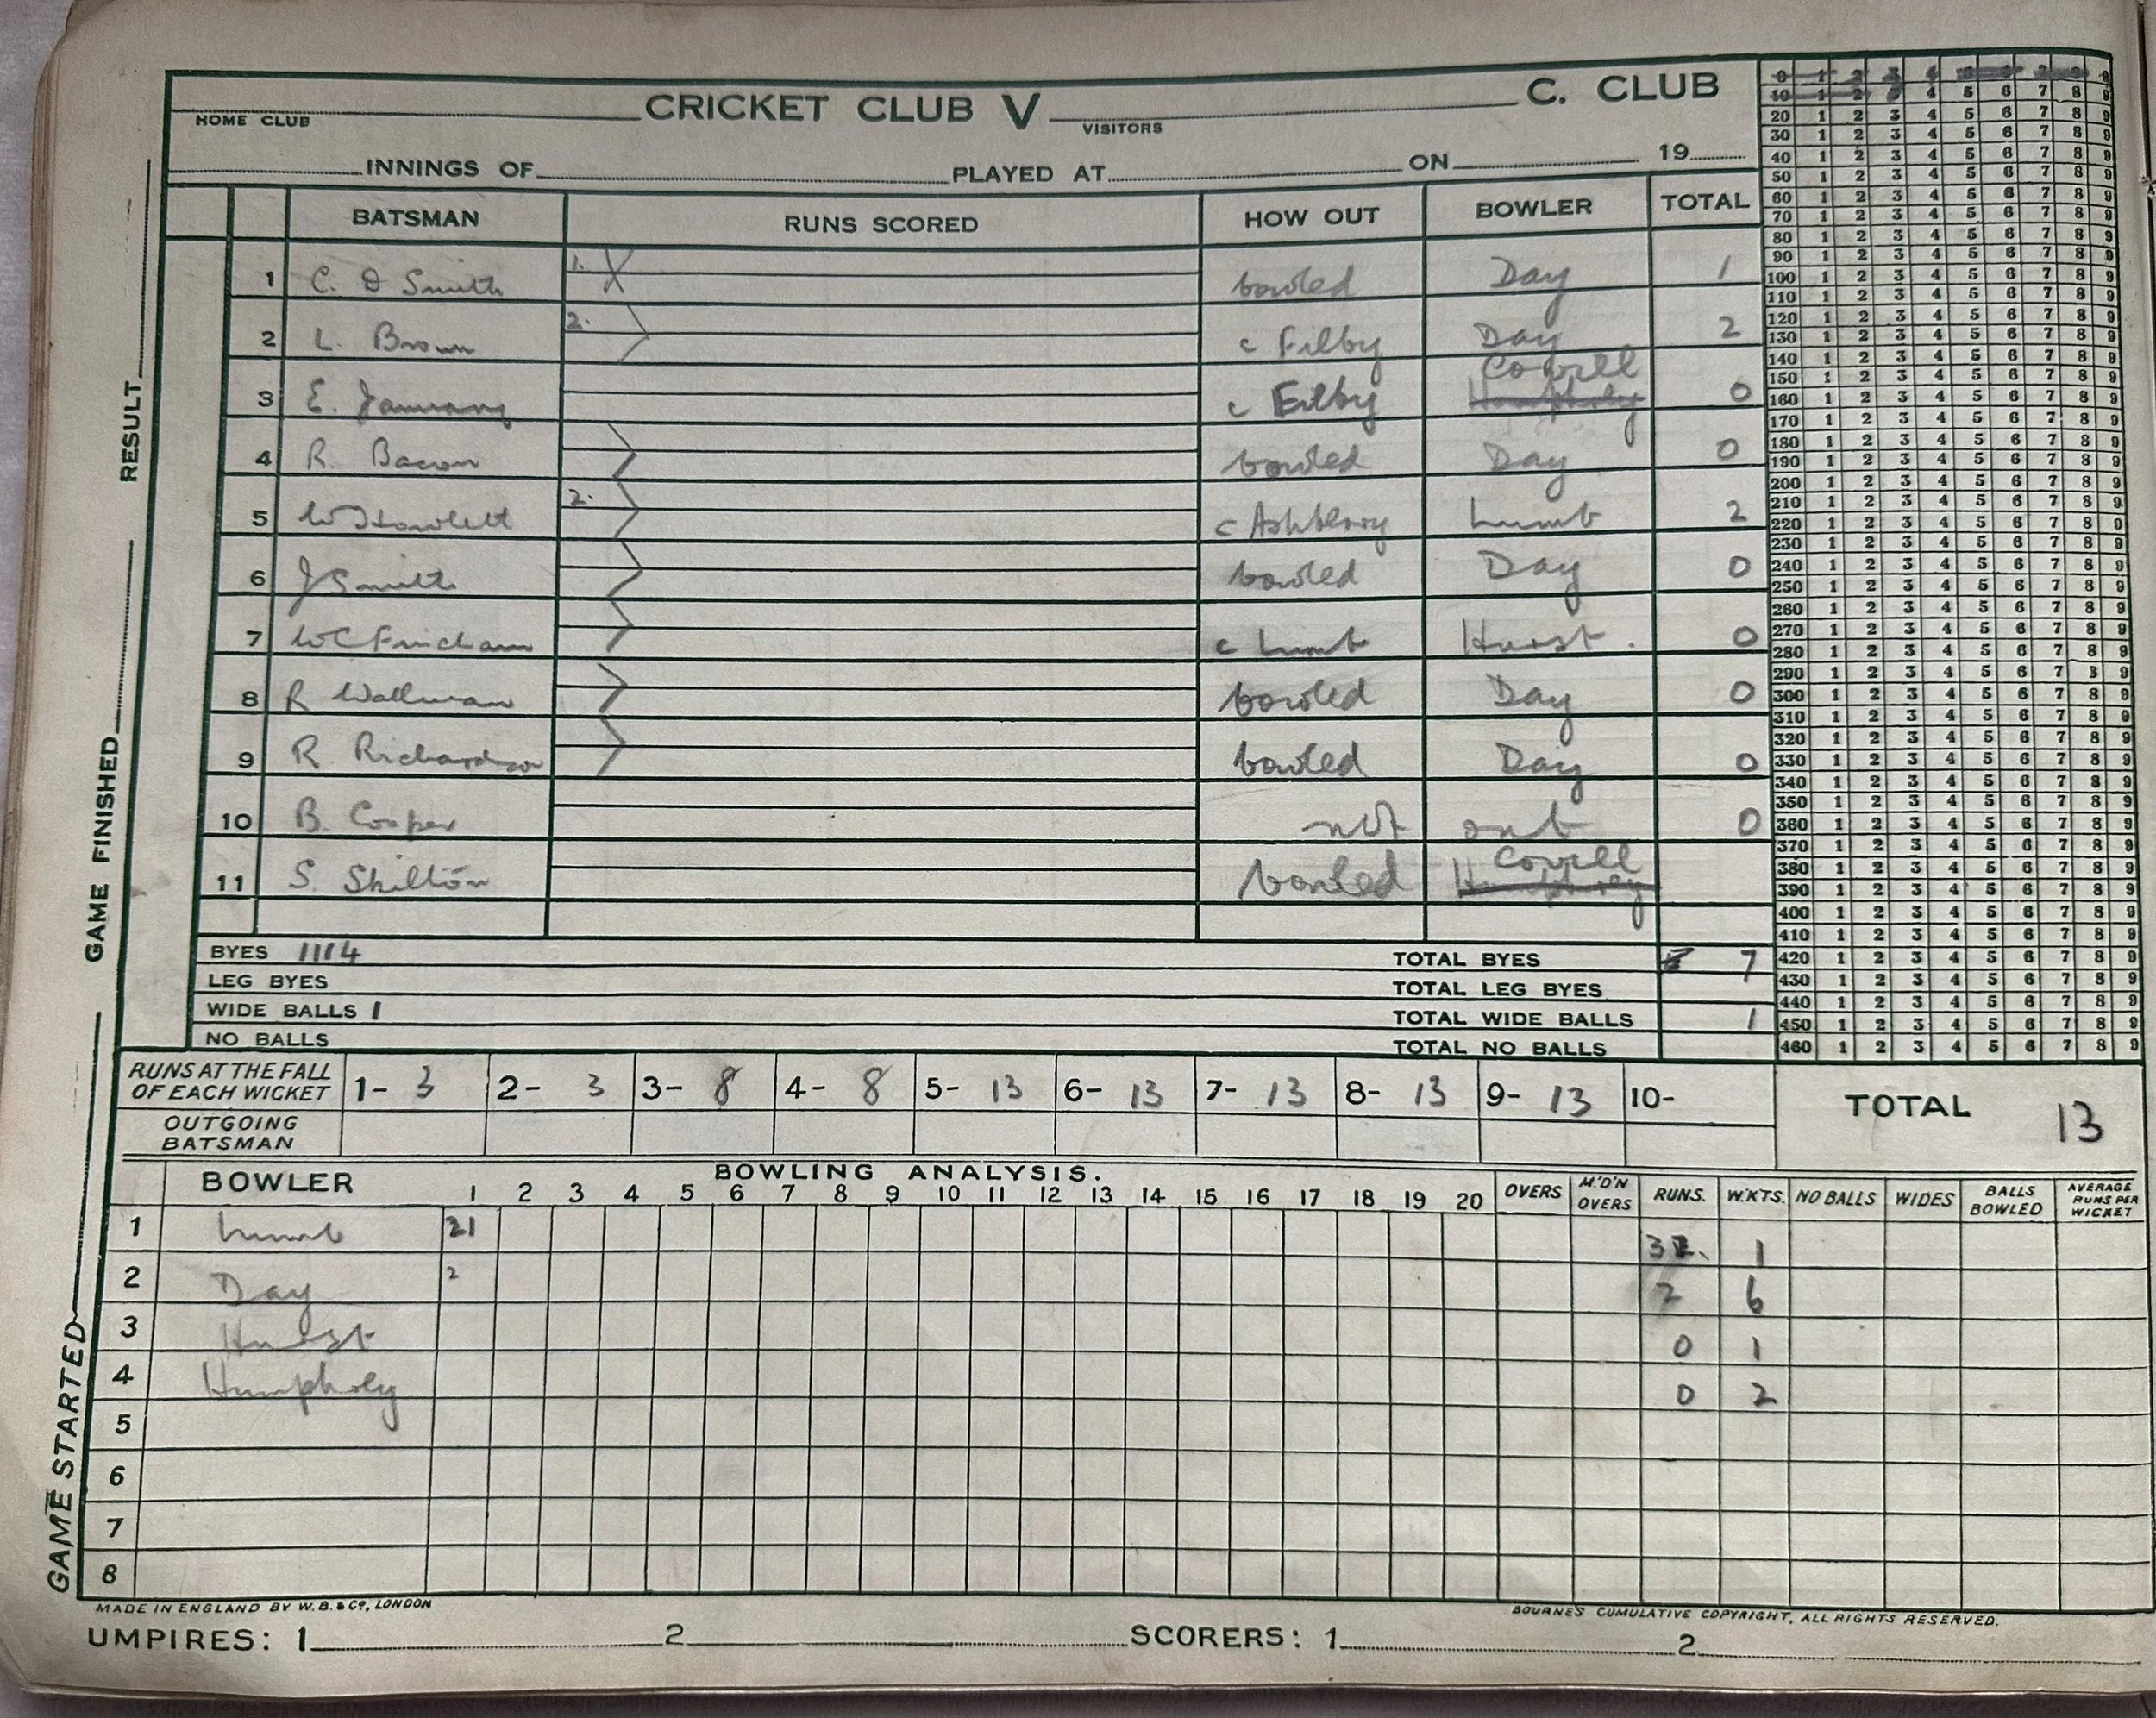 CRICKET CLUB V C. CLUB
HOME CLUB VISITORS
INNINGS OF PLAYED AT ON 19
BATSMAN RUNS SCORED HOW OUT BOWLER TOTAL
1 C. D Smith 1. bowled Day 1
2 L. Brown 2. c Filby Day 2
Covell
3 E. January c Filby Humphrey 0
4 R. Bacon bowled Day 0
5 W Howlett 2. c Ashberry Lumb 2
6 J Smith bowled Day 0
7 c Lumb Hurst. 0
8 R Wallman bowled Day 0
9 R. Richardson bowled Day 0
10 B. Cooper not out 0
Covell
11 S. Shilton bowled Humphrey
BYES 1114 TOTAL BYES 7
LEG BYES TOTAL LEG BYES
WIDE BALLS 1 TOTAL WIDE BALLS 1
NO BALLS TOTAL NO BALLS
RUNS AT THE FALL
OF EACH WICKET 1- 3 2- 3 3- 8 4- 8 5- 13 6- 13 7- 13 8- 13 9- 13 10-
TOTAL 13
OUTGOING
BATSMAN
BOWLING ANALYSIS.
BOWLER 1 2 3 4 5 6 7 8 9 10 11 12 13 14 15 16 17 18 19 20 OVERS M.'D'N OVERS RUNS. W.KTS. NO BALLS WIDES BALLS BOWLED AVERAGE RUNS PER WICKET
1 Lumb 21 3 1
2 Day 2 2 6
3 Hurst 0 1
4 Humphrey 0 2
5
6
7
8
MADE IN ENGLAND BY W. B. & Co, LONDON
BOURNE'S CUMULATIVE COPYRIGHT, ALL RIGHTS RESERVED.
UMPIRES: 1 2 SCORERS: 1 2
GAME STARTED GAME FINISHED RESULT
0 1 2 3 4 5 6 7 8 9
10 1 2 3 4 5 6 7 8 9
20 1 2 3 4 5 6 7 8 9
30 1 2 3 4 5 6 7 8 9
40 1 2 3 4 5 6 7 8 9
50 1 2 3 4 5 6 7 8 9
60 1 2 3 4 5 6 7 8 9
70 1 2 3 4 5 6 7 8 9
80 1 2 3 4 5 6 7 8 9
90 1 2 3 4 5 6 7 8 9
100 1 2 3 4 5 6 7 8 9
110 1 2 3 4 5 6 7 8 9
120 1 2 3 4 5 6 7 8 9
130 1 2 3 4 5 6 7 8 9
140 1 2 3 4 5 6 7 8 9
150 1 2 3 4 5 6 7 8 9
160 1 2 3 4 5 6 7 8 9
170 1 2 3 4 5 6 7 8 9
180 1 2 3 4 5 6 7 8 9
190 1 2 3 4 5 6 7 8 9
200 1 2 3 4 5 6 7 8 9
210 1 2 3 4 5 6 7 8 9
220 1 2 3 4 5 6 7 8 9
230 1 2 3 4 5 6 7 8 9
240 1 2 3 4 5 6 7 8 9
250 1 2 3 4 5 6 7 8 9
260 1 2 3 4 5 6 7 8 9
270 1 2 3 4 5 6 7 8 9
280 1 2 3 4 5 6 7 8 9
290 1 2 3 4 5 6 7 3 9
300 1 2 3 4 5 6 7 8 9
310 1 2 3 4 5 6 7 8 9
320 1 2 3 4 5 6 7 8 9
330 1 2 3 4 5 6 7 8 9
340 1 2 3 4 5 6 7 8 9
350 1 2 3 4 5 6 7 8 9
360 1 2 3 4 5 6 7 8 9
370 1 2 3 4 5 6 7 8 9
380 1 2 3 4 5 6 7 8 9
390 1 2 3 4 5 6 7 8 9
400 1 2 3 4 5 6 7 8 9
410 1 2 3 4 5 6 7 8 9
420 1 2 3 4 5 6 7 8 9
430 1 2 3 4 5 6 7 8 9
440 1 2 3 4 5 6 7 8 9
450 1 2 3 4 5 6 7 8 9
460 1 2 3 4 5 6 7 8 9